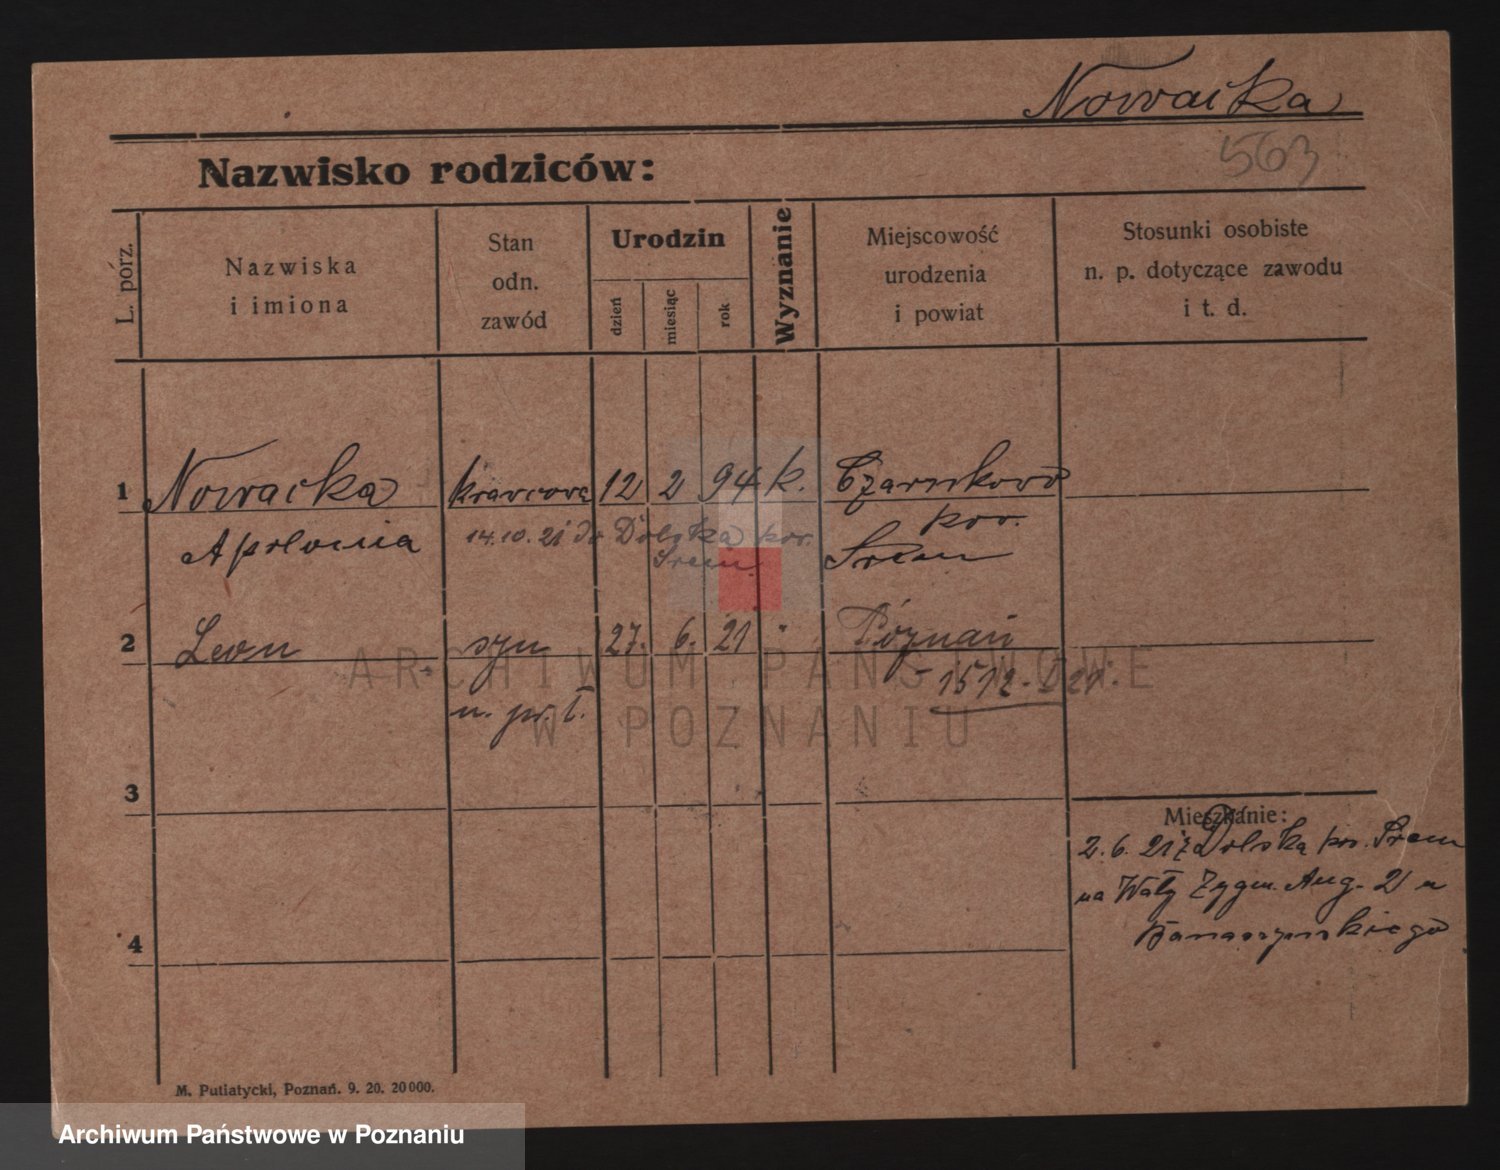 Nowacka
563
Nazwisko rodziców:
L. pórz.
Nazwiska
i imiona
Stan
odn.
zawód
Urodzin
dzień
miesiąc
rok
Wyznanie
Miejscowość
urodzenia
i powiat
Stosunki osobiste
n. p. dotyczące zawodu
i t. d.
1 Nowacka krawcowa 12 2 94 k. Czarnkowo
pow.
Apolonia 14.10.21 do Dolska pow. Śrem
Śrem
2 Leon syn 27. 6. 21 " Poznań
- 1512 - 21.
n. pr. ł.
3
4
Mieszkanie:
2. 6. 21 z Dolska pow. Śrem
na Wały Zygm. Aug. 2 u
M. Putiatycki, Poznań. 9. 20. 20000.
ARCHIWUM PAŃSTWOWE
W POZNANIU
Archiwum Państwowe w Poznaniu